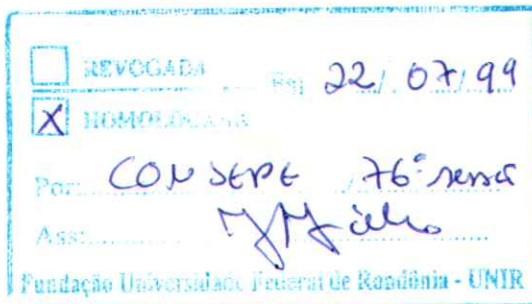 ☐ REVOGADA Em: 22/07/99
☒ HOMOLOGADA
Por: CONSEPE 76ª sessã
Ass:
Fundação Universidade Federal de Rondônia - UNIR